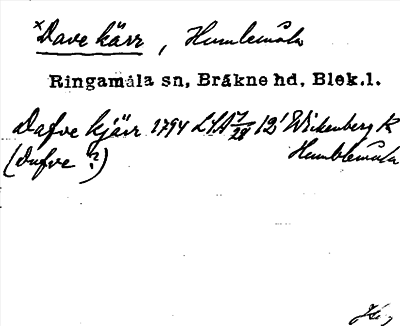 ×Dave kärr, Humlemåla
Ringamåla sn, Bräkne hd, Blek.l.
Dafve kjärr 1794 LSA 7/28 12' Wickenberg K
(Dufve ?) Humblemåla